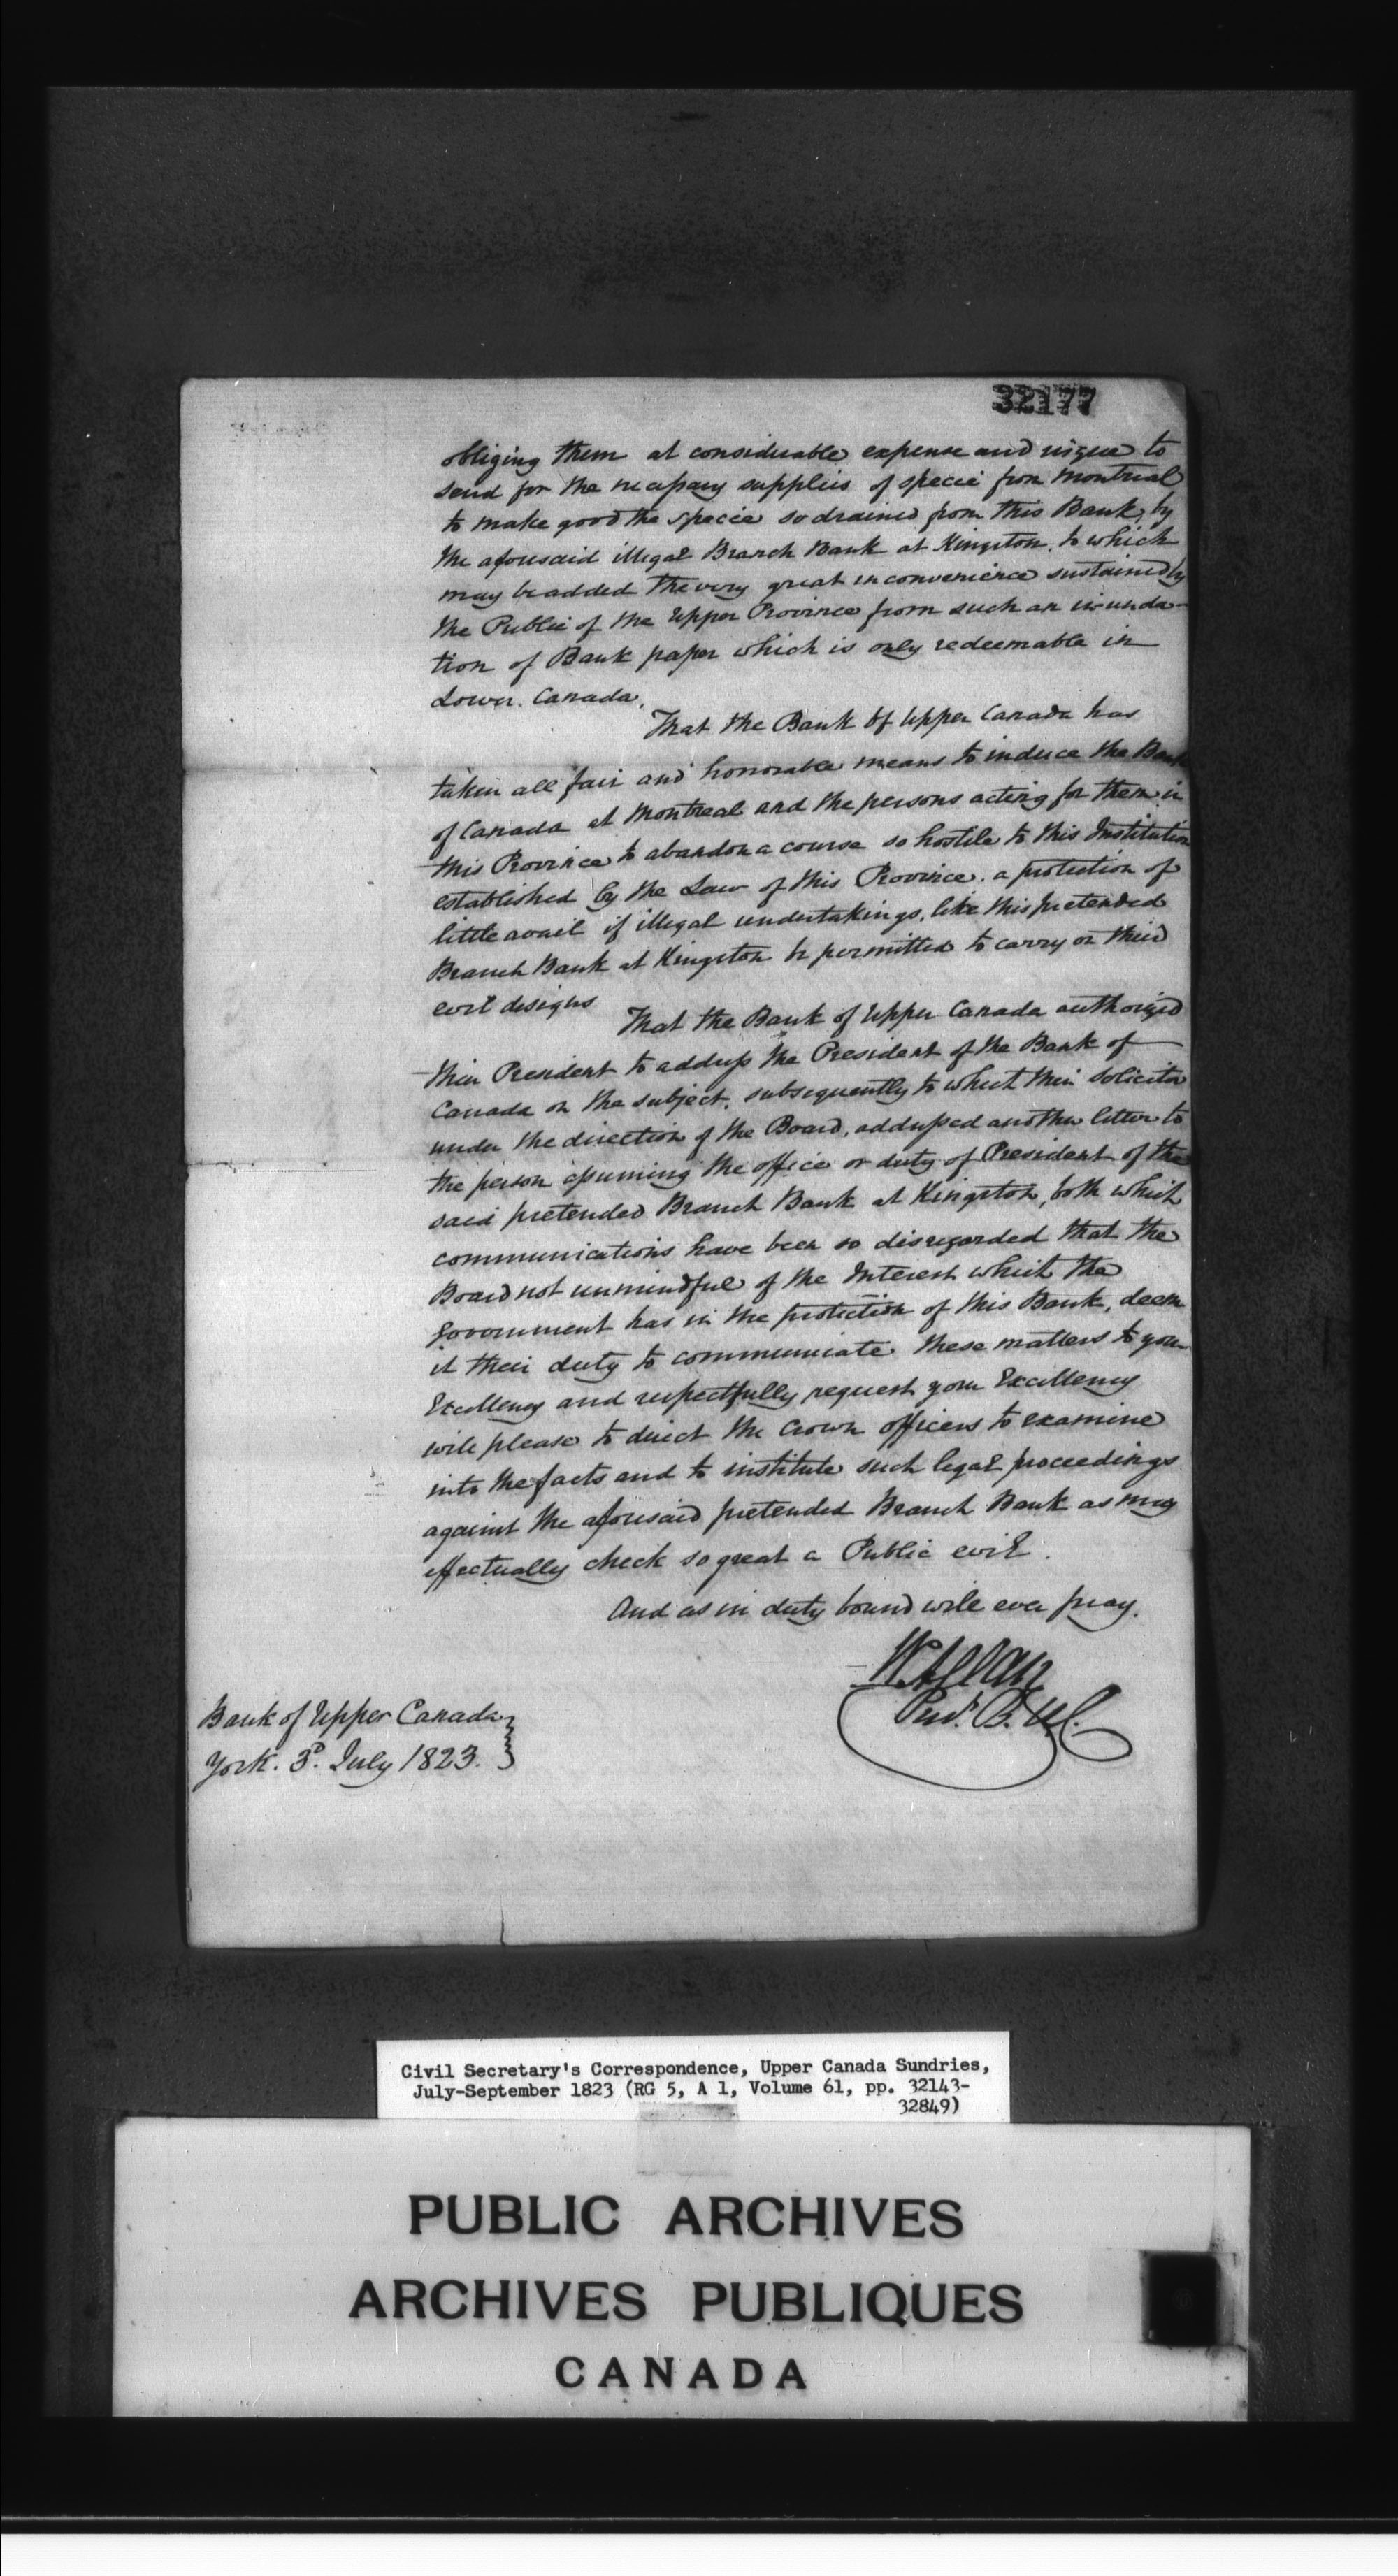 32177
obliging them at considerable expense and risque to
send for the necessary supplies of specie from Montreal
to make good the specie so drained from this Bank, by
the aforesaid illegal Branch Bank at Kingston. to which
may be added the very great inconvenience sustained by
the Public of the Upper Province from such an inunda-
tion of Bank paper which is only redeemable in
Lower. Canada.
That the Bank of Upper Canada has
taken all fair and honorable means to induce the Bank
of Canada at Montreal and the persons acting for them in
this Province to abandon a course so hostile to this Institution
established by the Law of this Province. a protection of
little avail if illegal undertakings, like this pretended
Branch Bank at Kingston be permitted to carry on their
evil designs
That the Bank of Upper Canada authorized
their President to address the President of the Bank of
Canada on the subject, subsequently to which their Solicitor
under the direction of the Board, addressed another letter to
the person assuming the office or duty of President of the
said pretended Branch Bank at Kingston, both which
communications have been so disregarded that the
Board not unmindful of the Interest which the
Government has in the protection of this Bank, deem
it their duty to communicate these matters to your
Excellency and respectfully request your Excellency
will please to direct the Crown officers to examine
into the facts and to institute such legal proceedings
against the aforesaid pretended Branch Bank as may
effectually check so great a Public evil.
And as in duty bound will ever pray.
W Allan
Presd. B. U C.
Bank of Upper Canada
York. 3d. July 1823.
Civil Secretary's Correspondence, Upper Canada Sundries,
July-September 1823 (RG 5, A 1, Volume 61, pp. 32143-
32849)
PUBLIC ARCHIVES
ARCHIVES PUBLIQUES
CANADA